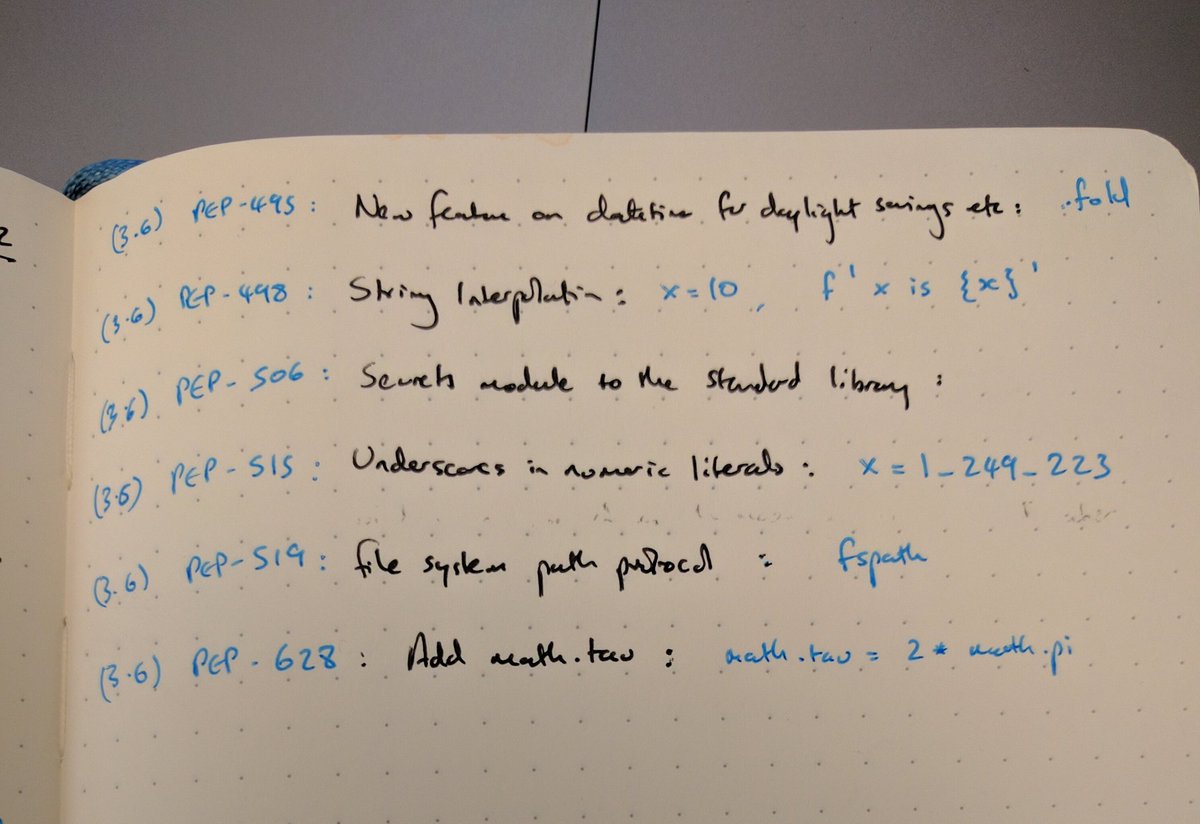 2
(3.6) PEP-495 : New feature on datetime for daylight savings etc : .fold
(3.6) PEP-498 : String Interpolation : x=10, f' x is {x}'
(3.6) PEP-506 : Secrets module to the standard library :
(3.6) PEP-515 : Underscores in numeric literals : x = 1_249_223
(3.6) PEP-519 : file system path protocol : fspath
(3.6) PEP-628 : Add math.tau : math.tau = 2 * math.pi